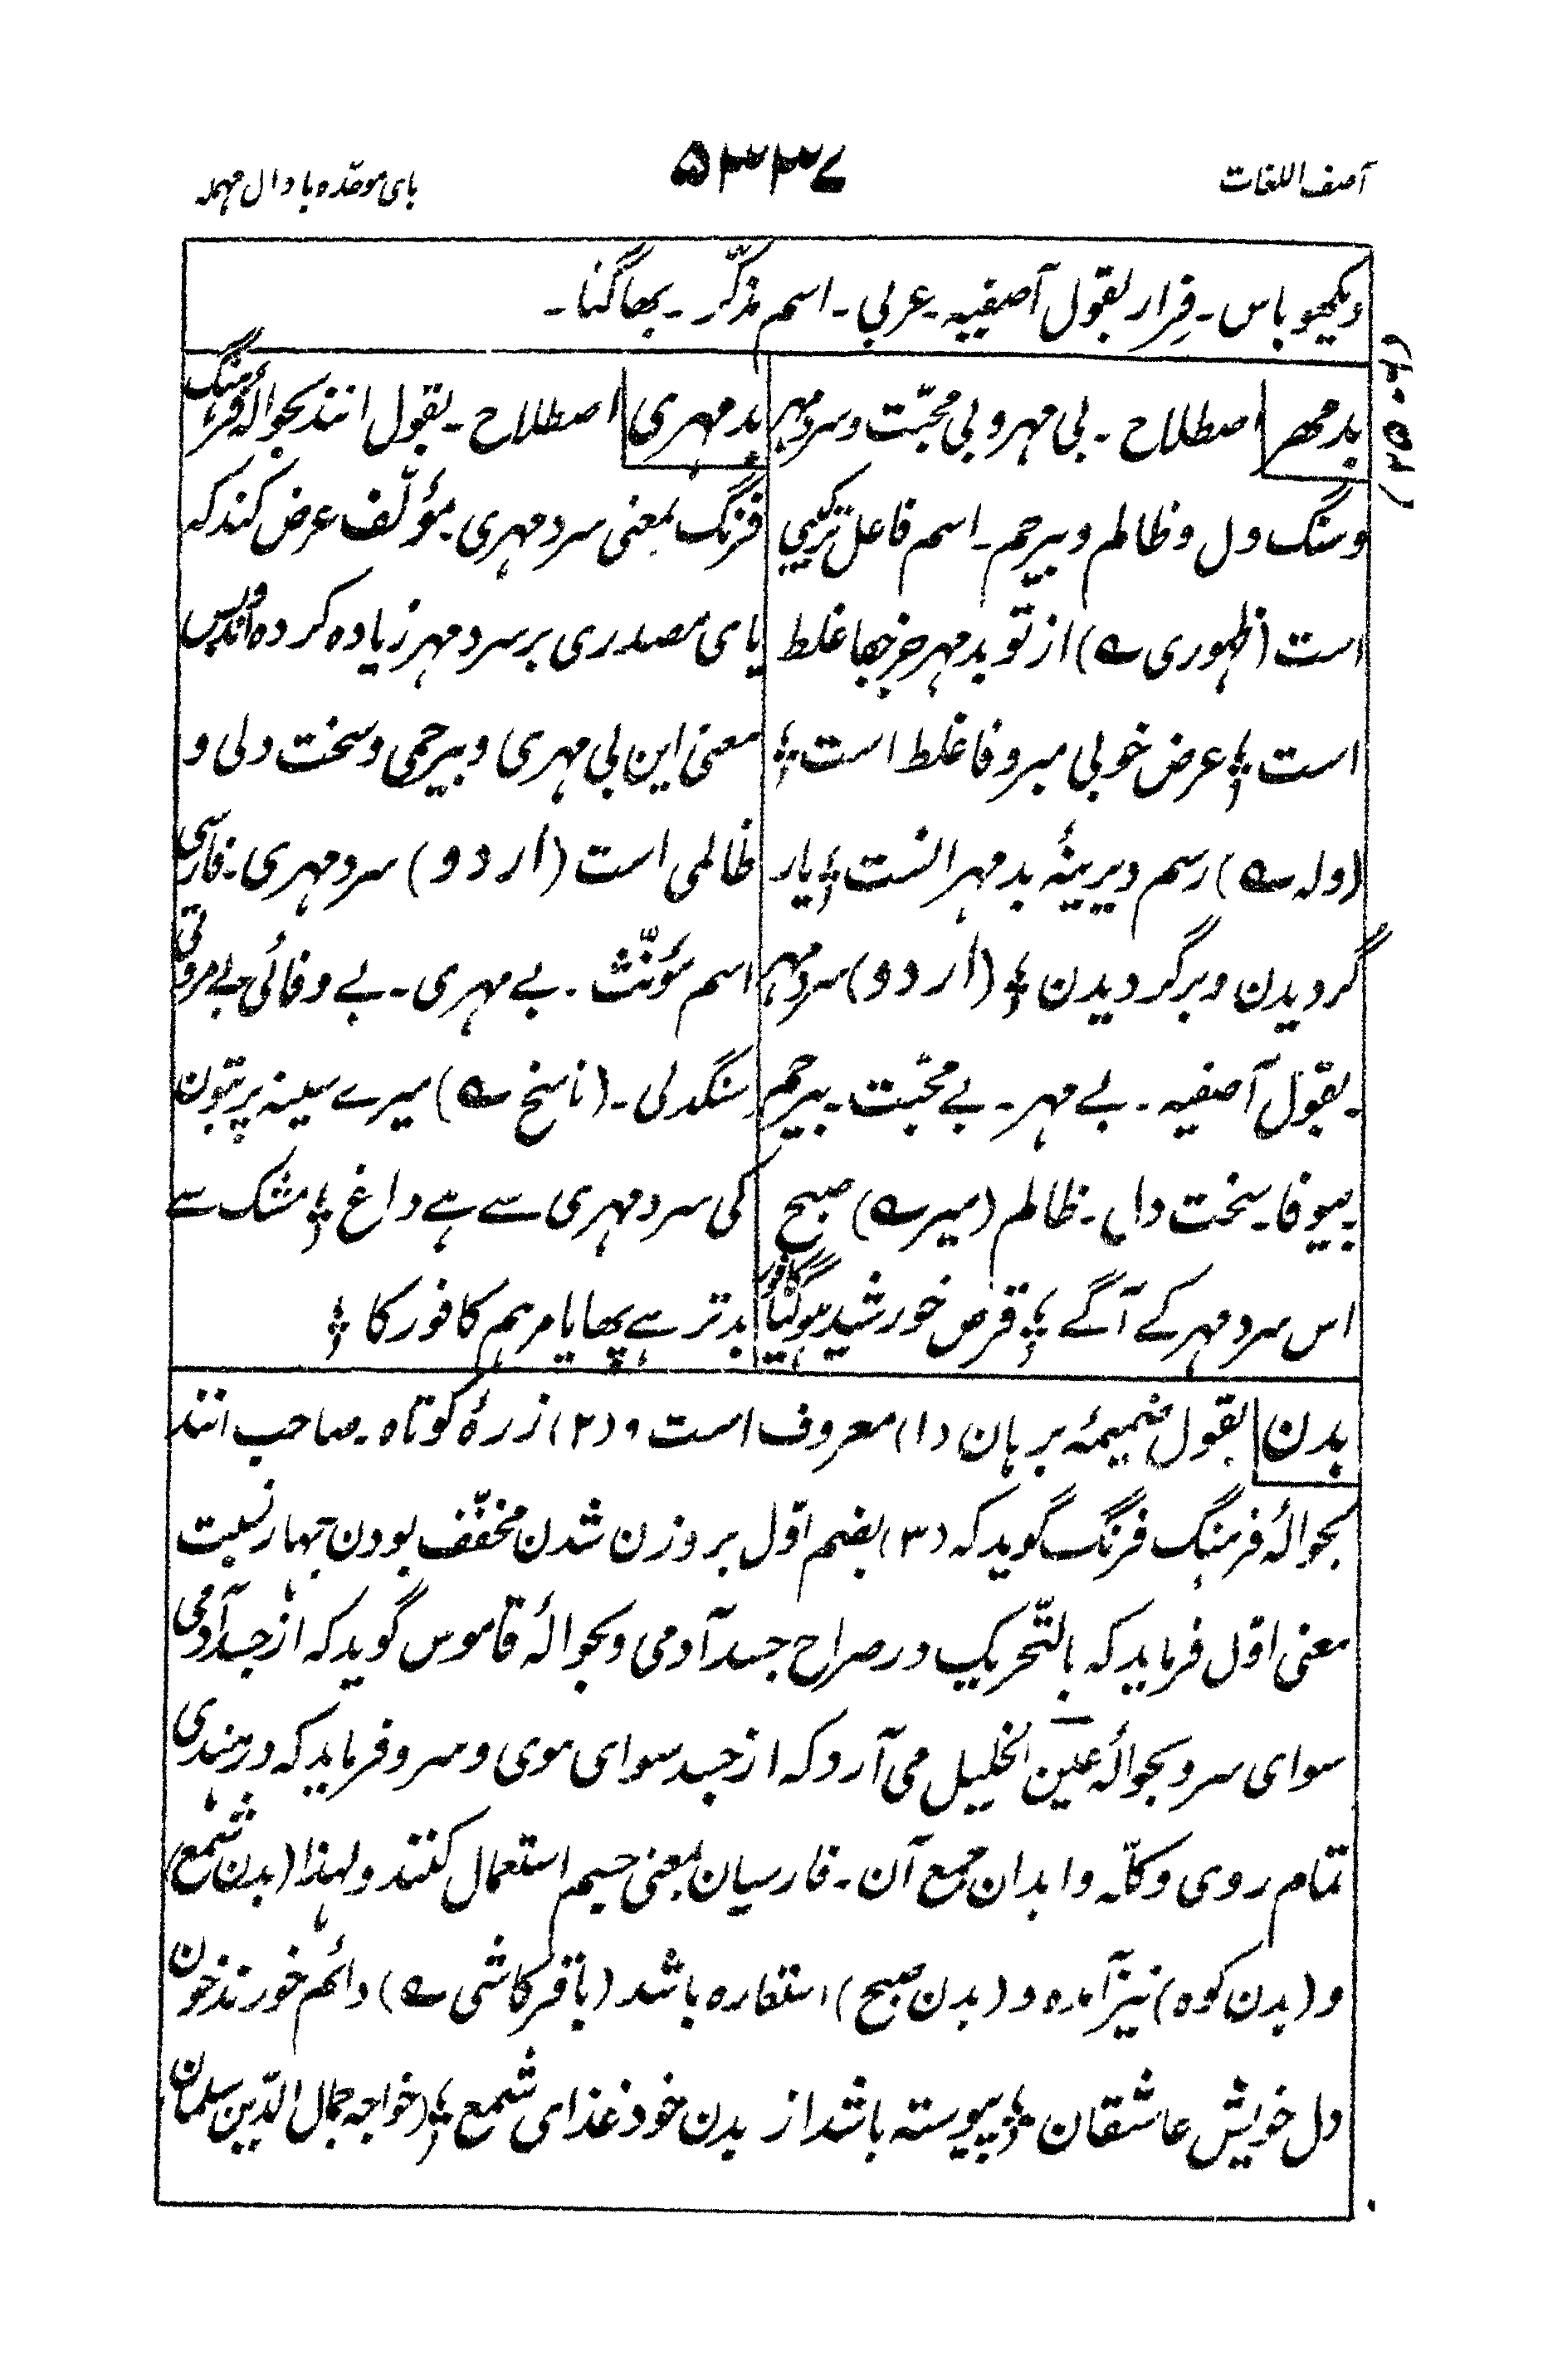 آصف اللغات
۵۳۳۷
بای موحّده با دال مهمله
دیکھو باس۔ فِرار بقول آصفیہ۔ عربی۔ اسم مذکّر۔ بھاگنا۔
بدمهر اصطلاح۔ بی مهر و بی محبّت و سرد مهر
و سنگ دل و ظالم و بیرحم۔ اسم فاعل ترکیبی
است (ظهوری ؎) از تو بدمهر جز جفا غلط
است ؛ عرض خوبی مبر وفا غلط است ؛
(وله ؎) رسم دیرینهٔ بدمهر انست ؛ یار
گردیدن و برگردیدن ؛ (اردو) سرد مہر
۔ بقول آصفیہ۔ بے مہر۔ بے محبّت۔ بیرحم
۔ بیوفا۔ سخت دل۔ ظالم (میر ؎) صبح
اس سرد مہر کے آگے ؛ قرص خورشید ہوگیا کافور
بدمهری اصطلاح۔ بقول انند بحوالهٔ فرهنگ
فرنگ بمعنی سرد مهری۔ مؤلّف عرض کند که
یای مصدری بر سرد مهر زیاده کرده اند و بس
معنی این بی مهری و بیرحمی و سخت دلی و
ظالمی است (اردو) سرد مہری۔ فارسی
اسم مؤنّث۔ بے مہری۔ بے وفائی بے مروتی
سنگدلی۔ (ناسخ ؎) میرے سینہ پر بتون
کی سرد مہری سے ہے داغ ؛ مشک سے
بدتر ہے پھایا مرہم کافور کا ؛
بدن بقول ضمیمهٔ برهان (۱) معروف است و (۲) زرهٔ کوتاه۔ صاحب انند
بحوالهٔ فرهنگ فرنگ گوید که (۳) بضم اوّل بر وزن شدن مخفّف بودن بهار نسبت
معنی اوّل فرماید که بالتّحریک در صراح جسد آدمی و بحوالهٔ قاموس گوید که از جسد آدمی
سوای سر و بحوالهٔ عین الخلیل می آرد که از جسد سوای موی و سر و فرماید که در هندی
تمام روی و کلّه و ابدان جمع آن۔ فارسیان بمعنی جسم استعمال کنند و لهذا (بدن شمع)
و (بدن کوه) نیز آمده و (بدن صبح) استعاره باشد (باقر کاشی ؎) دائم خورند خون
دل خویش عاشقان ؛ پیوسته باشد از بدن خود غذای شمع ؛ (خواجه جمال الدّین سلمان